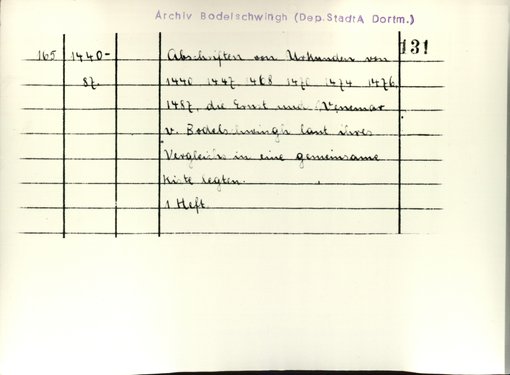 Archiv Bodelschwingh (Dep. StadtA Dortm.)
131
165 1440- Abschriften von Urkunden von
87. 1440 1447 1468 1470 1474 1476
1487, die Ernst und Wennemar
v. Bodelschwingh laut ihres
Vergleichs in eine gemeinsame
Kiste legten.
1 Heft.